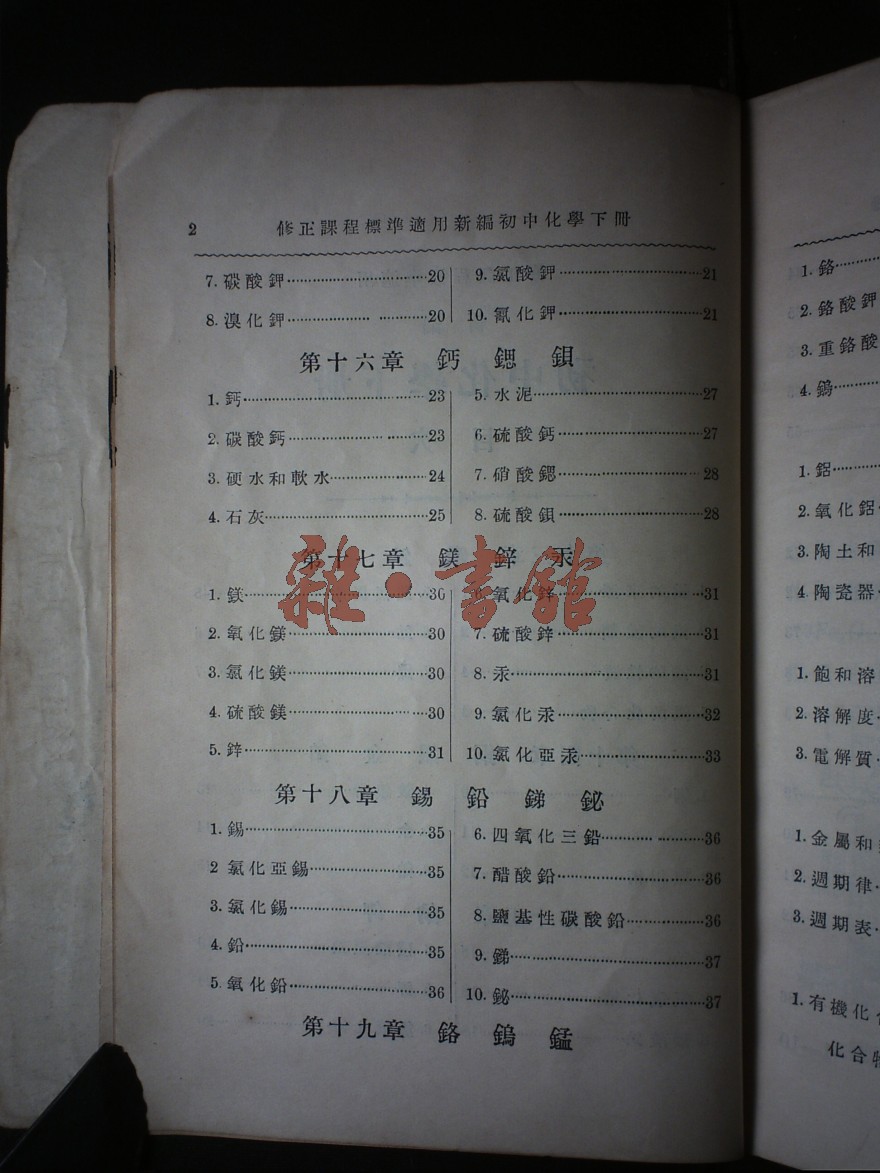 2 修正課程標準適用新編初中化學下冊
7. 碳酸鉀 20
8. 溴化鉀 20
9. 氯酸鉀 21
10. 氰化鉀 21
第十六章 鈣 鍶 鋇
1. 鈣 23
2. 碳酸鈣 23
3. 硬水和軟水 24
4. 石灰 25
5. 水泥 27
6. 硫酸鈣 27
7. 硝酸鍶 28
8. 硫酸鋇 28
第十七章 鎂 鋅 汞
雜·書館
1. 鎂 30
2. 氧化鎂 30
3. 氯化鎂 30
4. 硫酸鎂 30
5. 鋅 31
6. 氧化鋅 31
7. 硫酸鋅 31
8. 汞 31
9. 氯化汞 32
10. 氯化亞汞 33
第十八章 錫 鉛 銻 鉍
1. 錫 35
2 氯化亞錫 35
3. 氯化錫 35
4. 鉛 35
5. 氧化鉛 36
6. 四氧化三鉛 36
7. 醋酸鉛 36
8. 鹽基性碳酸鉛 36
9. 銻 37
10. 鉍 37
第十九章 鉻 鎢 錳
1. 鉻
2. 鉻酸鉀
3. 重鉻酸
4. 鎢
1. 鋁
2. 氧化鋁
3. 陶土和
4. 陶瓷器
1. 飽和溶
2. 溶解度
3. 電解質
1. 金屬和
2. 週期律
3. 週期表
1. 有機化合
化合物